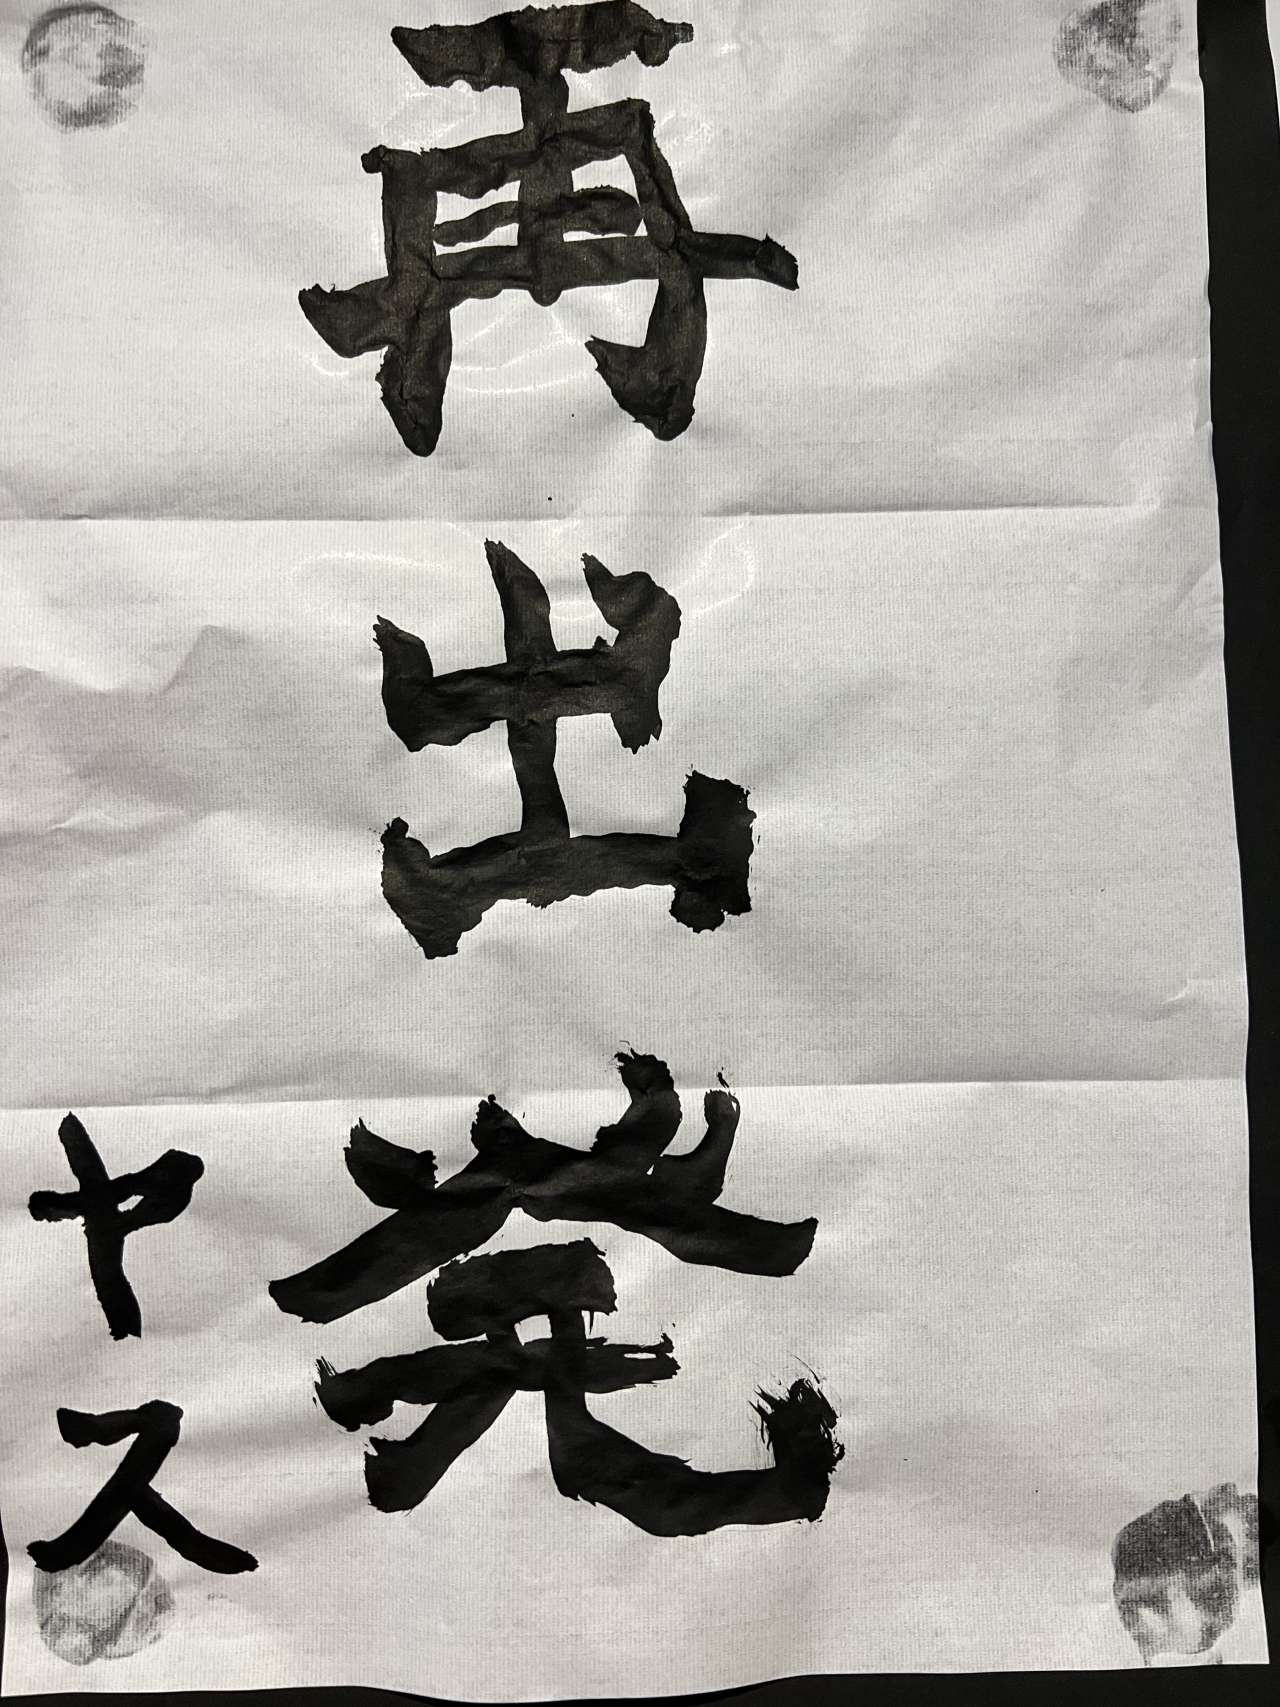 再出発
ヤス